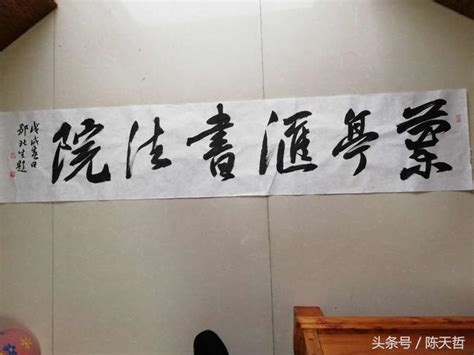 蘭亭滙書法院
戊戌日
北生題
头条号 / 陈天哲